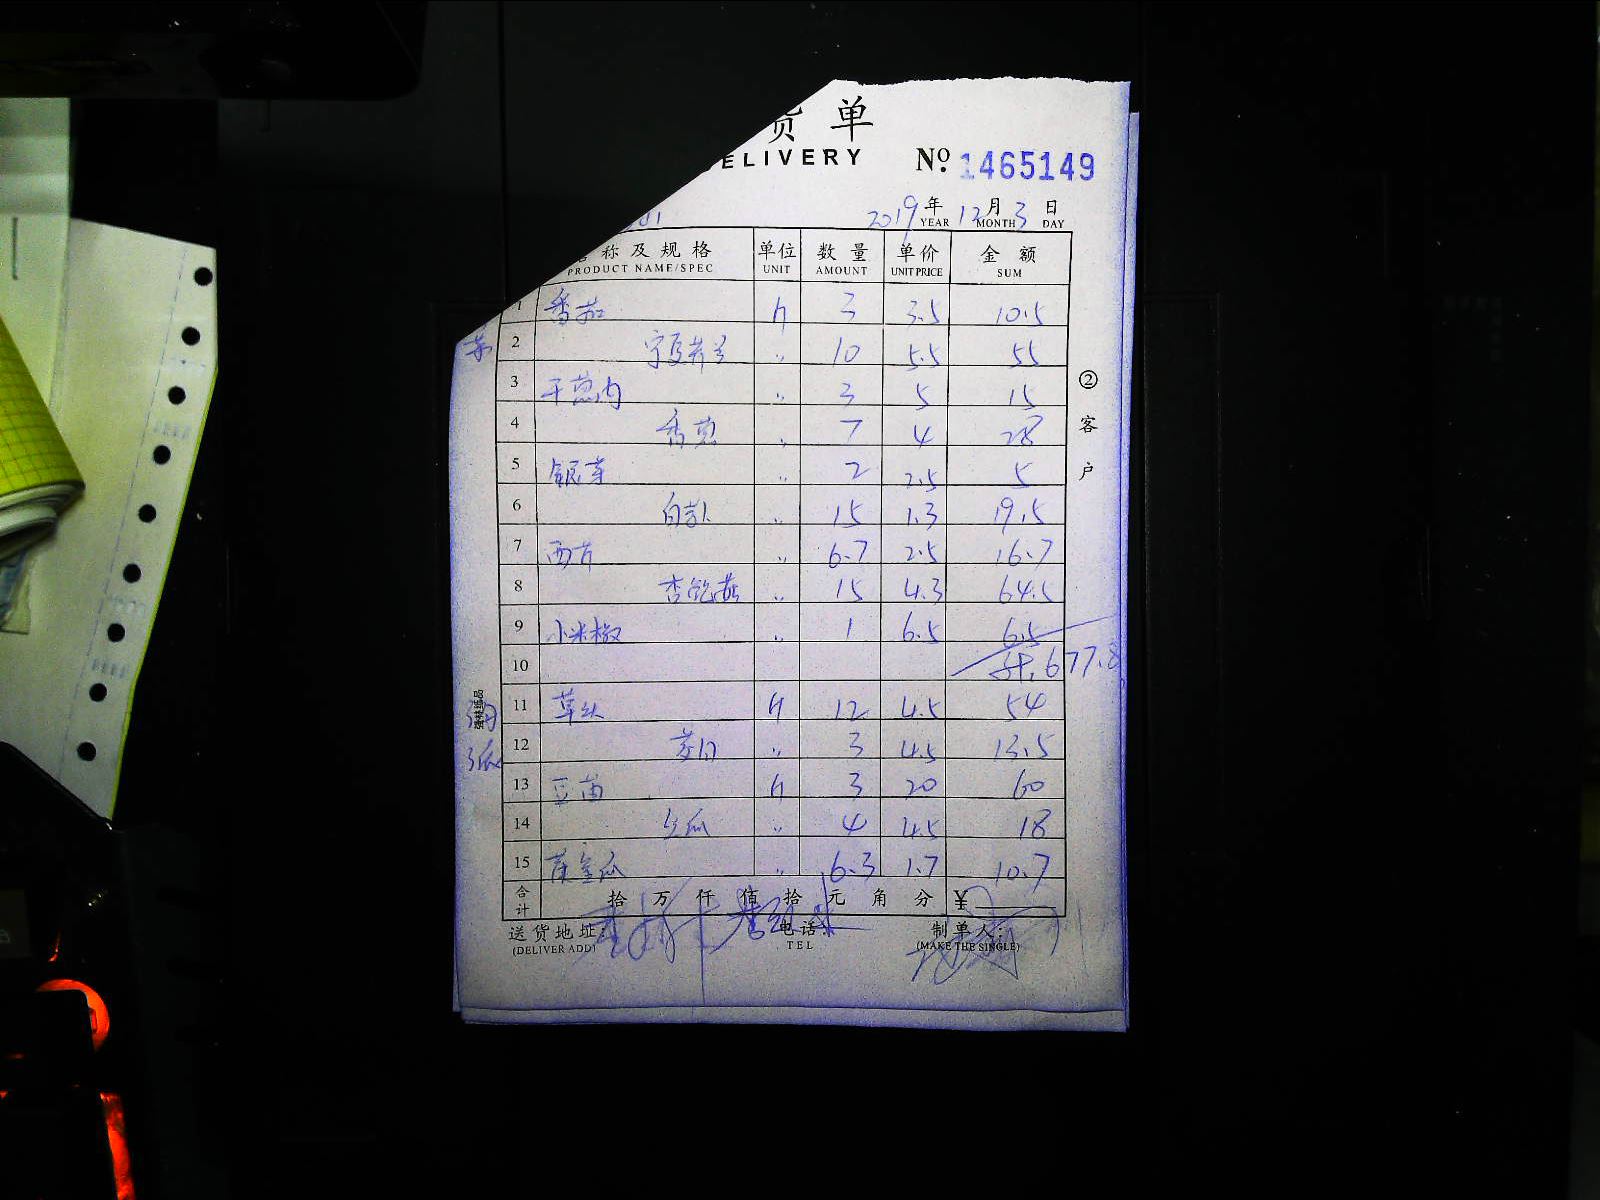 货单
DELIVERY No. 1465149
2019年 YEAR 12月 MONTH 3日 DAY
称及规格 单位 数量 单价 金额
PRODUCT NAME/SPEC UNIT AMOUNT UNIT PRICE SUM
1 番茄 斤 3 3.5 10.5
2 宁夏菜兰 〃 10 5.5 55
3 干葱肉 〃 3 5 15
4 香葱 〃 7 4 28
5 银芽 〃 2 2.5 5
6 〃 15 1.3 19.5
7 西芹 〃 6.7 2.5 16.7
8 杏鲍菇 〃 15 4.3 64.5
9 小米椒 〃 1 6.5 6.5
10 677.8
11 斤 12 4.5 54
12 茭白 〃 3 4.5 13.5
13 豆苗 斤 3 20 60
14 丝瓜 〃 4 4.5 18
15 黄金瓜 〃 6.3 1.7 10.7
合计 拾 万 仟 佰 拾 元 角 分 ¥
送货地址: 电话: 制单人:
(DELIVER ADD) TEL (MAKE THE SINGLE)
②客户